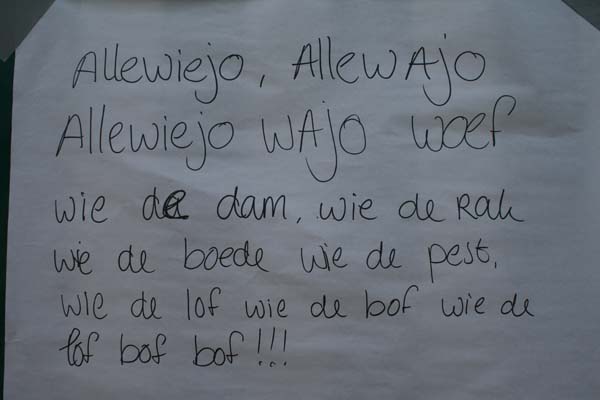 Allewiejo, AllewAjo
Allewiejo WAjo woef
wie de dam, wie de Rak
wie de boede wie de pest,
wie de lof wie de bof wie de
lof bof bof!!!